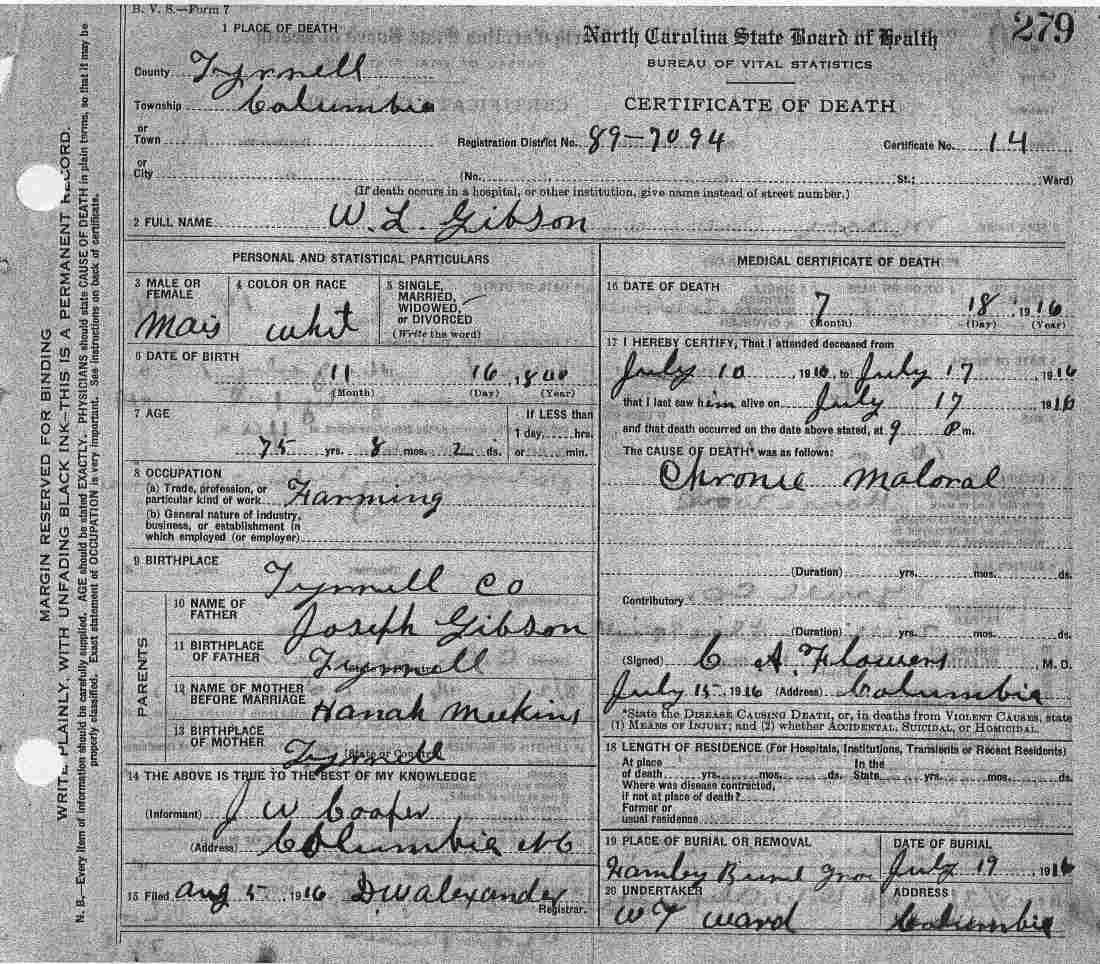 B. V. S.—Form 7
279
1 PLACE OF DEATH
North Carolina State Board of Health
BUREAU OF VITAL STATISTICS
CERTIFICATE OF DEATH
County Tyrrell
Township Columbia
or
Town
Registration District No. 89-7094
Certificate No. 14
or
City
(No. St.; Ward)
(If death occurs in a hospital, or other institution, give name instead of street number.)
2 FULL NAME W. L. Gibson
PERSONAL AND STATISTICAL PARTICULARS
3 MALE OR FEMALE
Male
4 COLOR OR RACE
Whit
5 SINGLE,
MARRIED,
WIDOWED,
or DIVORCED
(Write the word)
6 DATE OF BIRTH
11 16, 1840
(Month) (Day) (Year)
7 AGE
75 yrs. 8 mos. 2 ds.
If LESS than
1 day, hrs.
or min.
8 OCCUPATION
(a) Trade, profession, or
particular kind of work Farming
(b) General nature of industry,
business, or establishment in
which employed (or employer)
9 BIRTHPLACE
Tyrrell Co
PARENTS
10 NAME OF
FATHER
Joseph Gibson
11 BIRTHPLACE
OF FATHER
Tyrrell
12 NAME OF MOTHER
BEFORE MARRIAGE
Hanah Meekins
13 BIRTHPLACE
OF MOTHER
(State or Country)
Tyrrell
14 THE ABOVE IS TRUE TO THE BEST OF MY KNOWLEDGE
(Informant) J W Cooper
(Address) Columbia NC
15 Filed Aug 5, 1916 D.W. Alexander
Registrar.
MEDICAL CERTIFICATE OF DEATH
16 DATE OF DEATH
7 18, 1916
(Month) (Day) (Year)
17 I HEREBY CERTIFY, That I attended deceased from
July 10, 1916, to July 17, 1916
that I last saw him alive on July 17, 1916
and that death occurred on the date above stated, at 9 P m.
The CAUSE OF DEATH* was as follows:
Chronic
(Duration) yrs. mos. ds.
Contributory
(Duration) yrs. mos. ds.
(Signed) C. A. Flowers, M. D.
July 15, 1916 (Address) Columbia
*State the DISEASE CAUSING DEATH, or, in deaths from VIOLENT CAUSES, state
(1) MEANS OF INJURY; and (2) whether ACCIDENTAL, SUICIDAL, or HOMICIDAL.
18 LENGTH OF RESIDENCE (For Hospitals, Institutions, Transients or Recent Residents)
At place In the
of death yrs. mos. ds. State yrs. mos. ds.
Where was disease contracted,
if not at place of death?
Former or
usual residence
19 PLACE OF BURIAL OR REMOVAL
DATE OF BURIAL
July 19, 1916
20 UNDERTAKER
ADDRESS
W T Ward
Columbia
MARGIN RESERVED FOR BINDING
WRITE PLAINLY, WITH UNFADING BLACK INK—THIS IS A PERMANENT RECORD.
N. B.—Every item of information should be carefully supplied. AGE should be stated EXACTLY. PHYSICIANS should state CAUSE OF DEATH in plain terms, so that it may be
properly classified. Exact statement of OCCUPATION is very important. See instructions on back of certificate.